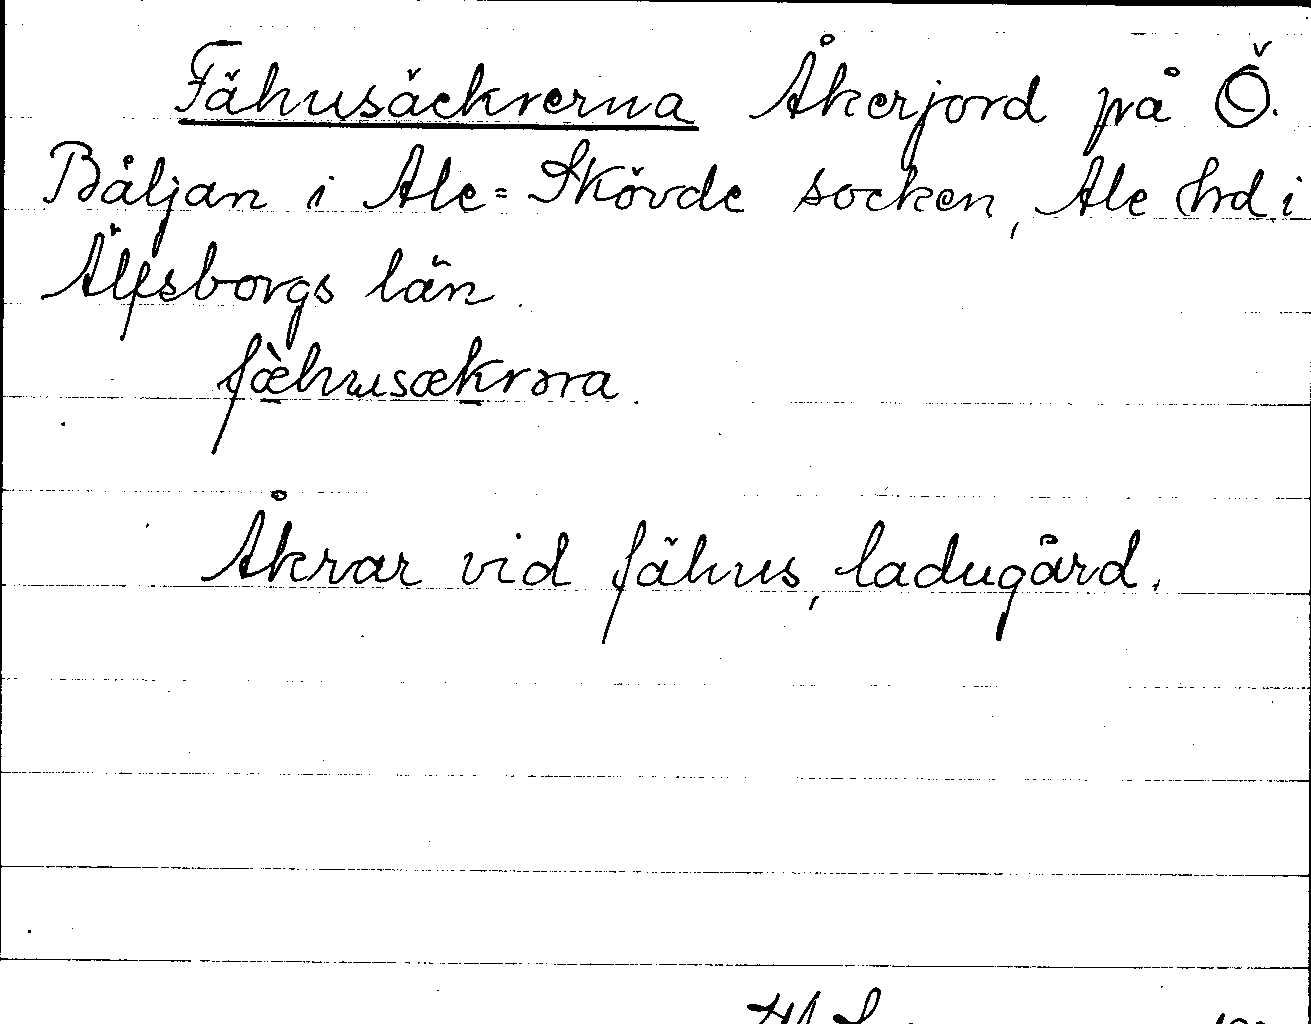 Fähusäckrerna Åkerjord på Ö.
Båljan i Ale=Skövde socken, Ale hrd i
Älfsborgs län.
fæ̀husækrəra.
Åkrar vid fähus, ladugård.